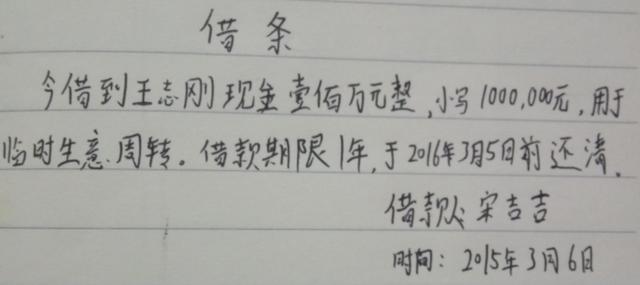 借条
今借到王志刚现金壹佰万元整,小写1000,000元,用于
临时生意周转。借款期限1年,于2016年3月5日前还清。
借款人:宋吉吉
时间:2015年3月6日